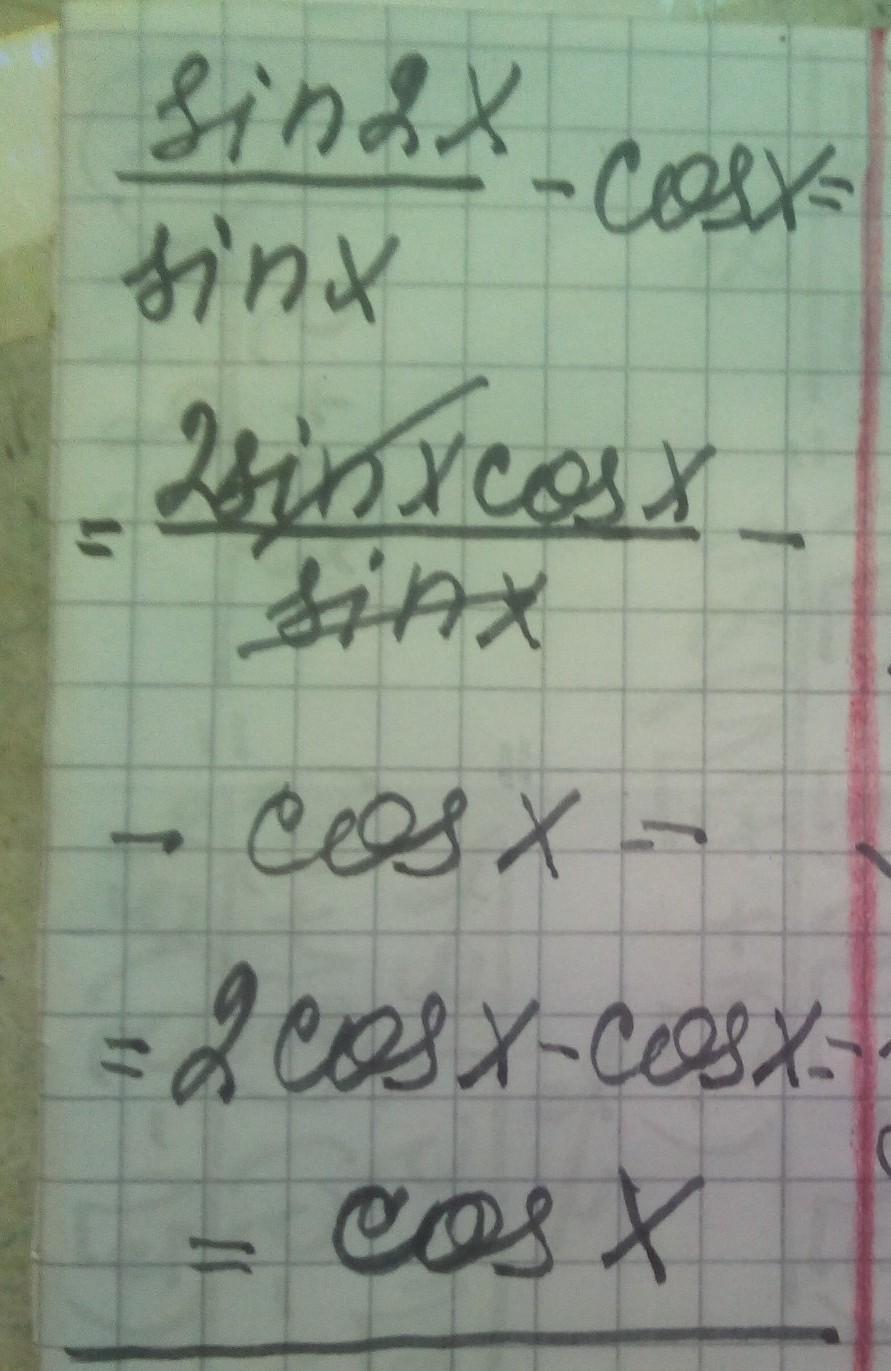 sin2x
sinx
- cosx=
= 2sinxcosx
sinx
-
- cosx =
= 2cosx-cosx=
= cosx